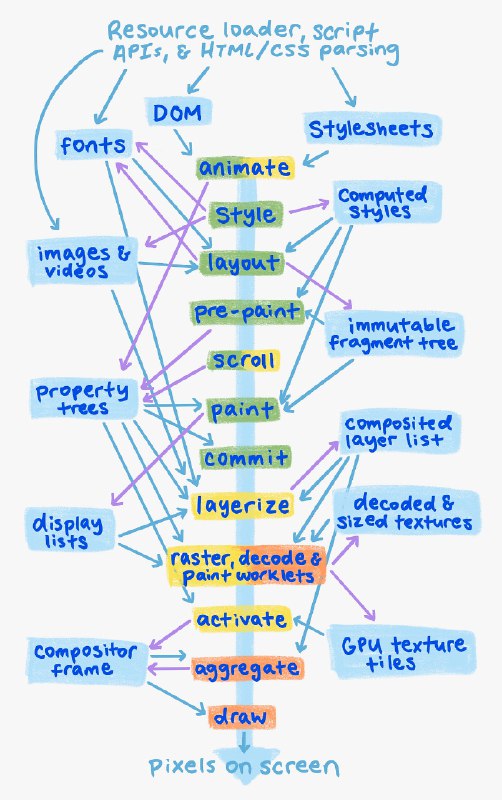 Resource loader, script
APIs, & HTML/CSS parsing
DOM
Stylesheets
fonts
animate
Style
Computed
styles
images &
videos
layout
pre-paint
immutable
fragment tree
scroll
property
trees
paint
composited
layer list
commit
layerize
decoded &
sized textures
display
lists
raster, decode &
paint worklets
activate
GPU texture
tiles
compositor
frame
aggregate
draw
pixels on screen